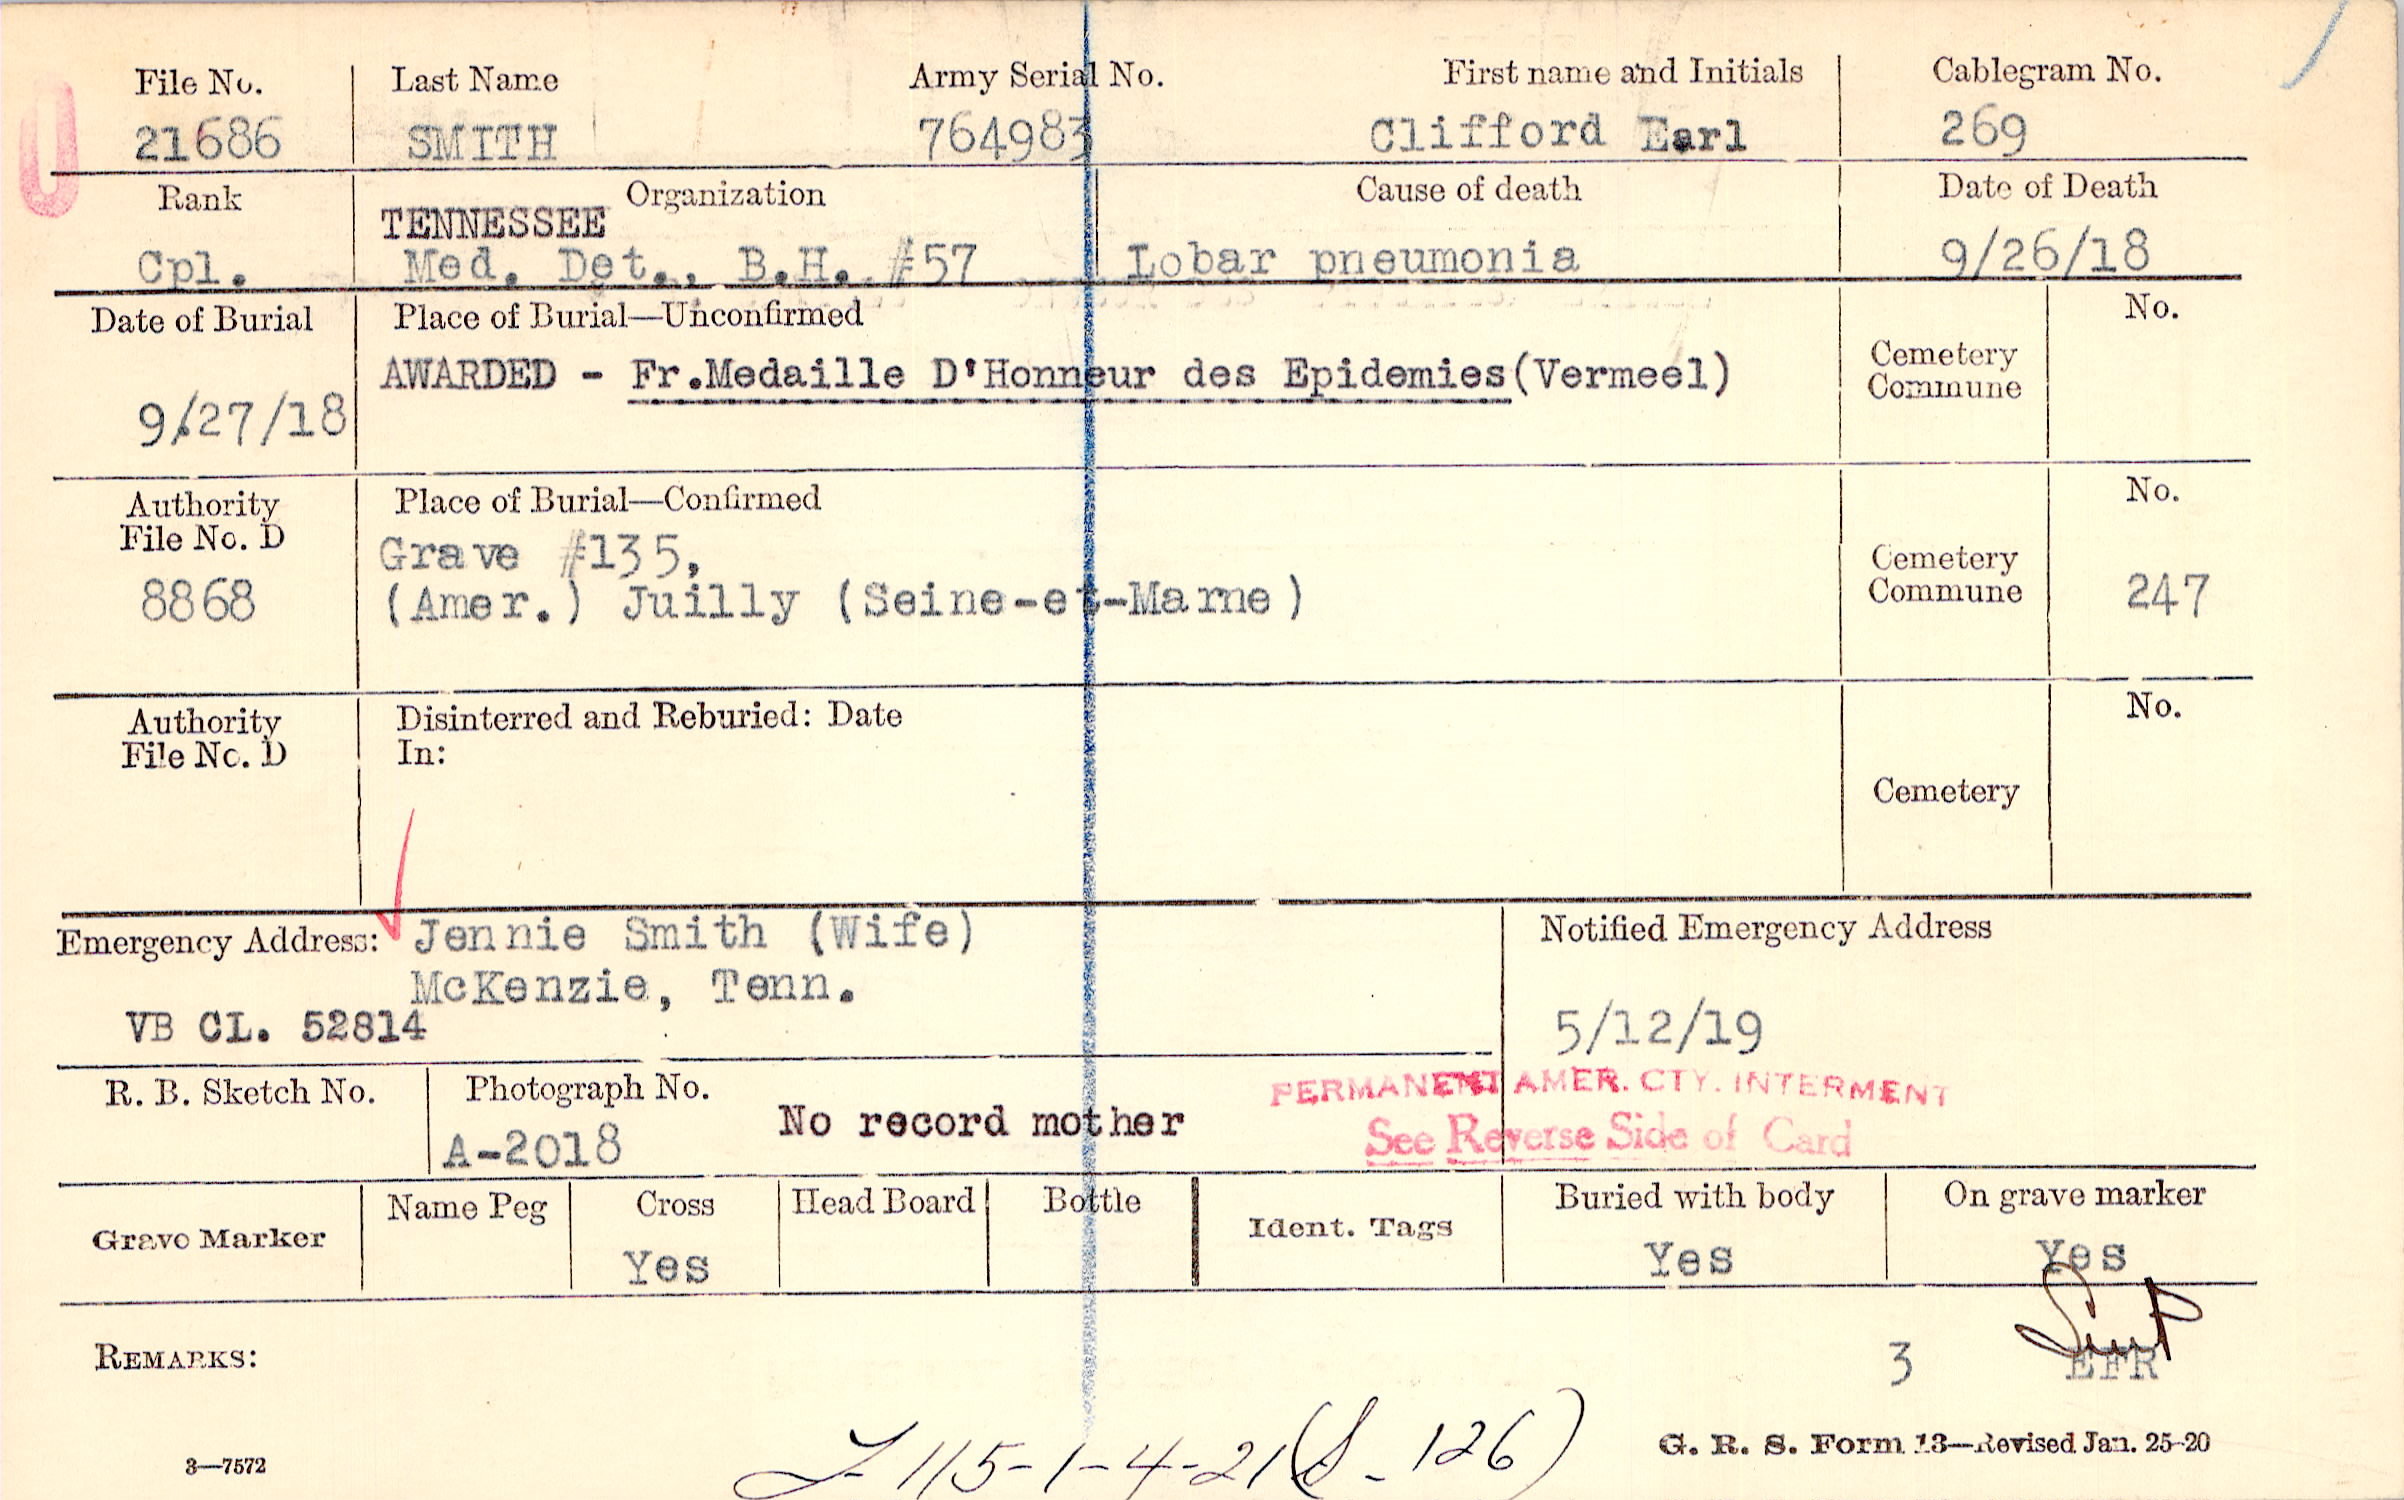 File No. Last Name Army Serial No. First name and Initials Cablegram No.
21686 SMITH 764983 Clifford Earl 269
Rank Organization Cause of death Date of Death
TENNESSEE
Cpl. Med. Det., B.H. #57 Lobar pneumonia 9/26/18
Date of Burial Place of Burial—Unconfirmed No.
AWARDED - Fr.Medaille D'Honneur des Epidemies(Vermeel) Cemetery
Commune
9/27/18
Authority Place of Burial—Confirmed No.
File No. D
Grave #135, Cemetery
8868 (Amer.) Juilly (Seine-et-Marne) Commune 247
Authority Disinterred and Reburied: Date No.
File No. D In:
Cemetery
Emergency Address: Jennie Smith (Wife) Notified Emergency Address
McKenzie, Tenn.
VB CL. 52814 5/12/19
R. B. Sketch No. Photograph No. PERMANENT AMER. CTY. INTERMENT
A-2018 No record mother See Reverse Side of Card
Name Peg Cross Head Board Bottle Buried with body On grave marker
Grave Marker Ident. Tags
Yes Yes Yes
REMARKS: 3 EFR
G. R. S. Form 13—Revised Jan. 25-20
3—7572 115-1-4-21 126)